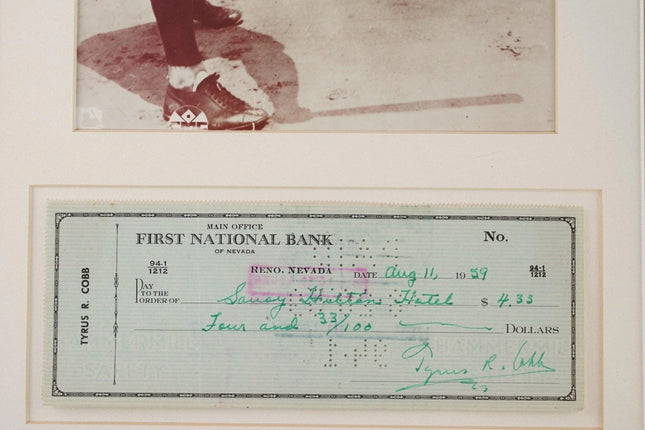 MAIN OFFICE
FIRST NATIONAL BANK
OF NEVADA
No.
94-1
1212
RENO, NEVADA DATE Aug 11, 1959
94-1
1212
PAY TO THE ORDER OF Savoy Hilton Hotel $ 4.33
Four and 33/100 DOLLARS
TYRUS R. COBB
Tyrus R. Cobb